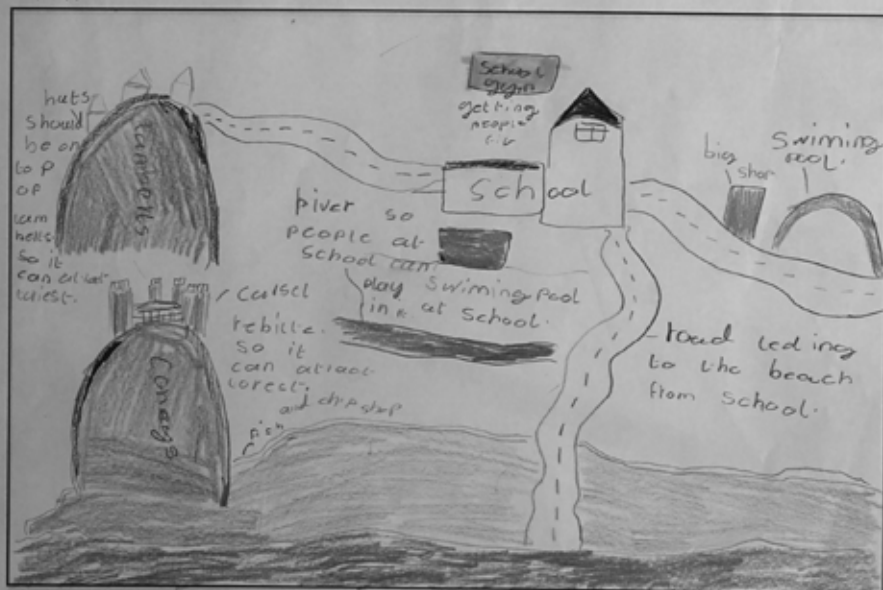 huts
should
be on
top
of
so it
can
Tunnells
School
gym
getting
people
School
big shop
Swiming
pool.
River so
people at
School can
play
in
Swiming Pool
at School.
Castel
rebilte.
so it
can atract
torest.
Conays
fish and chip shop
road leding
to the beach
from School.